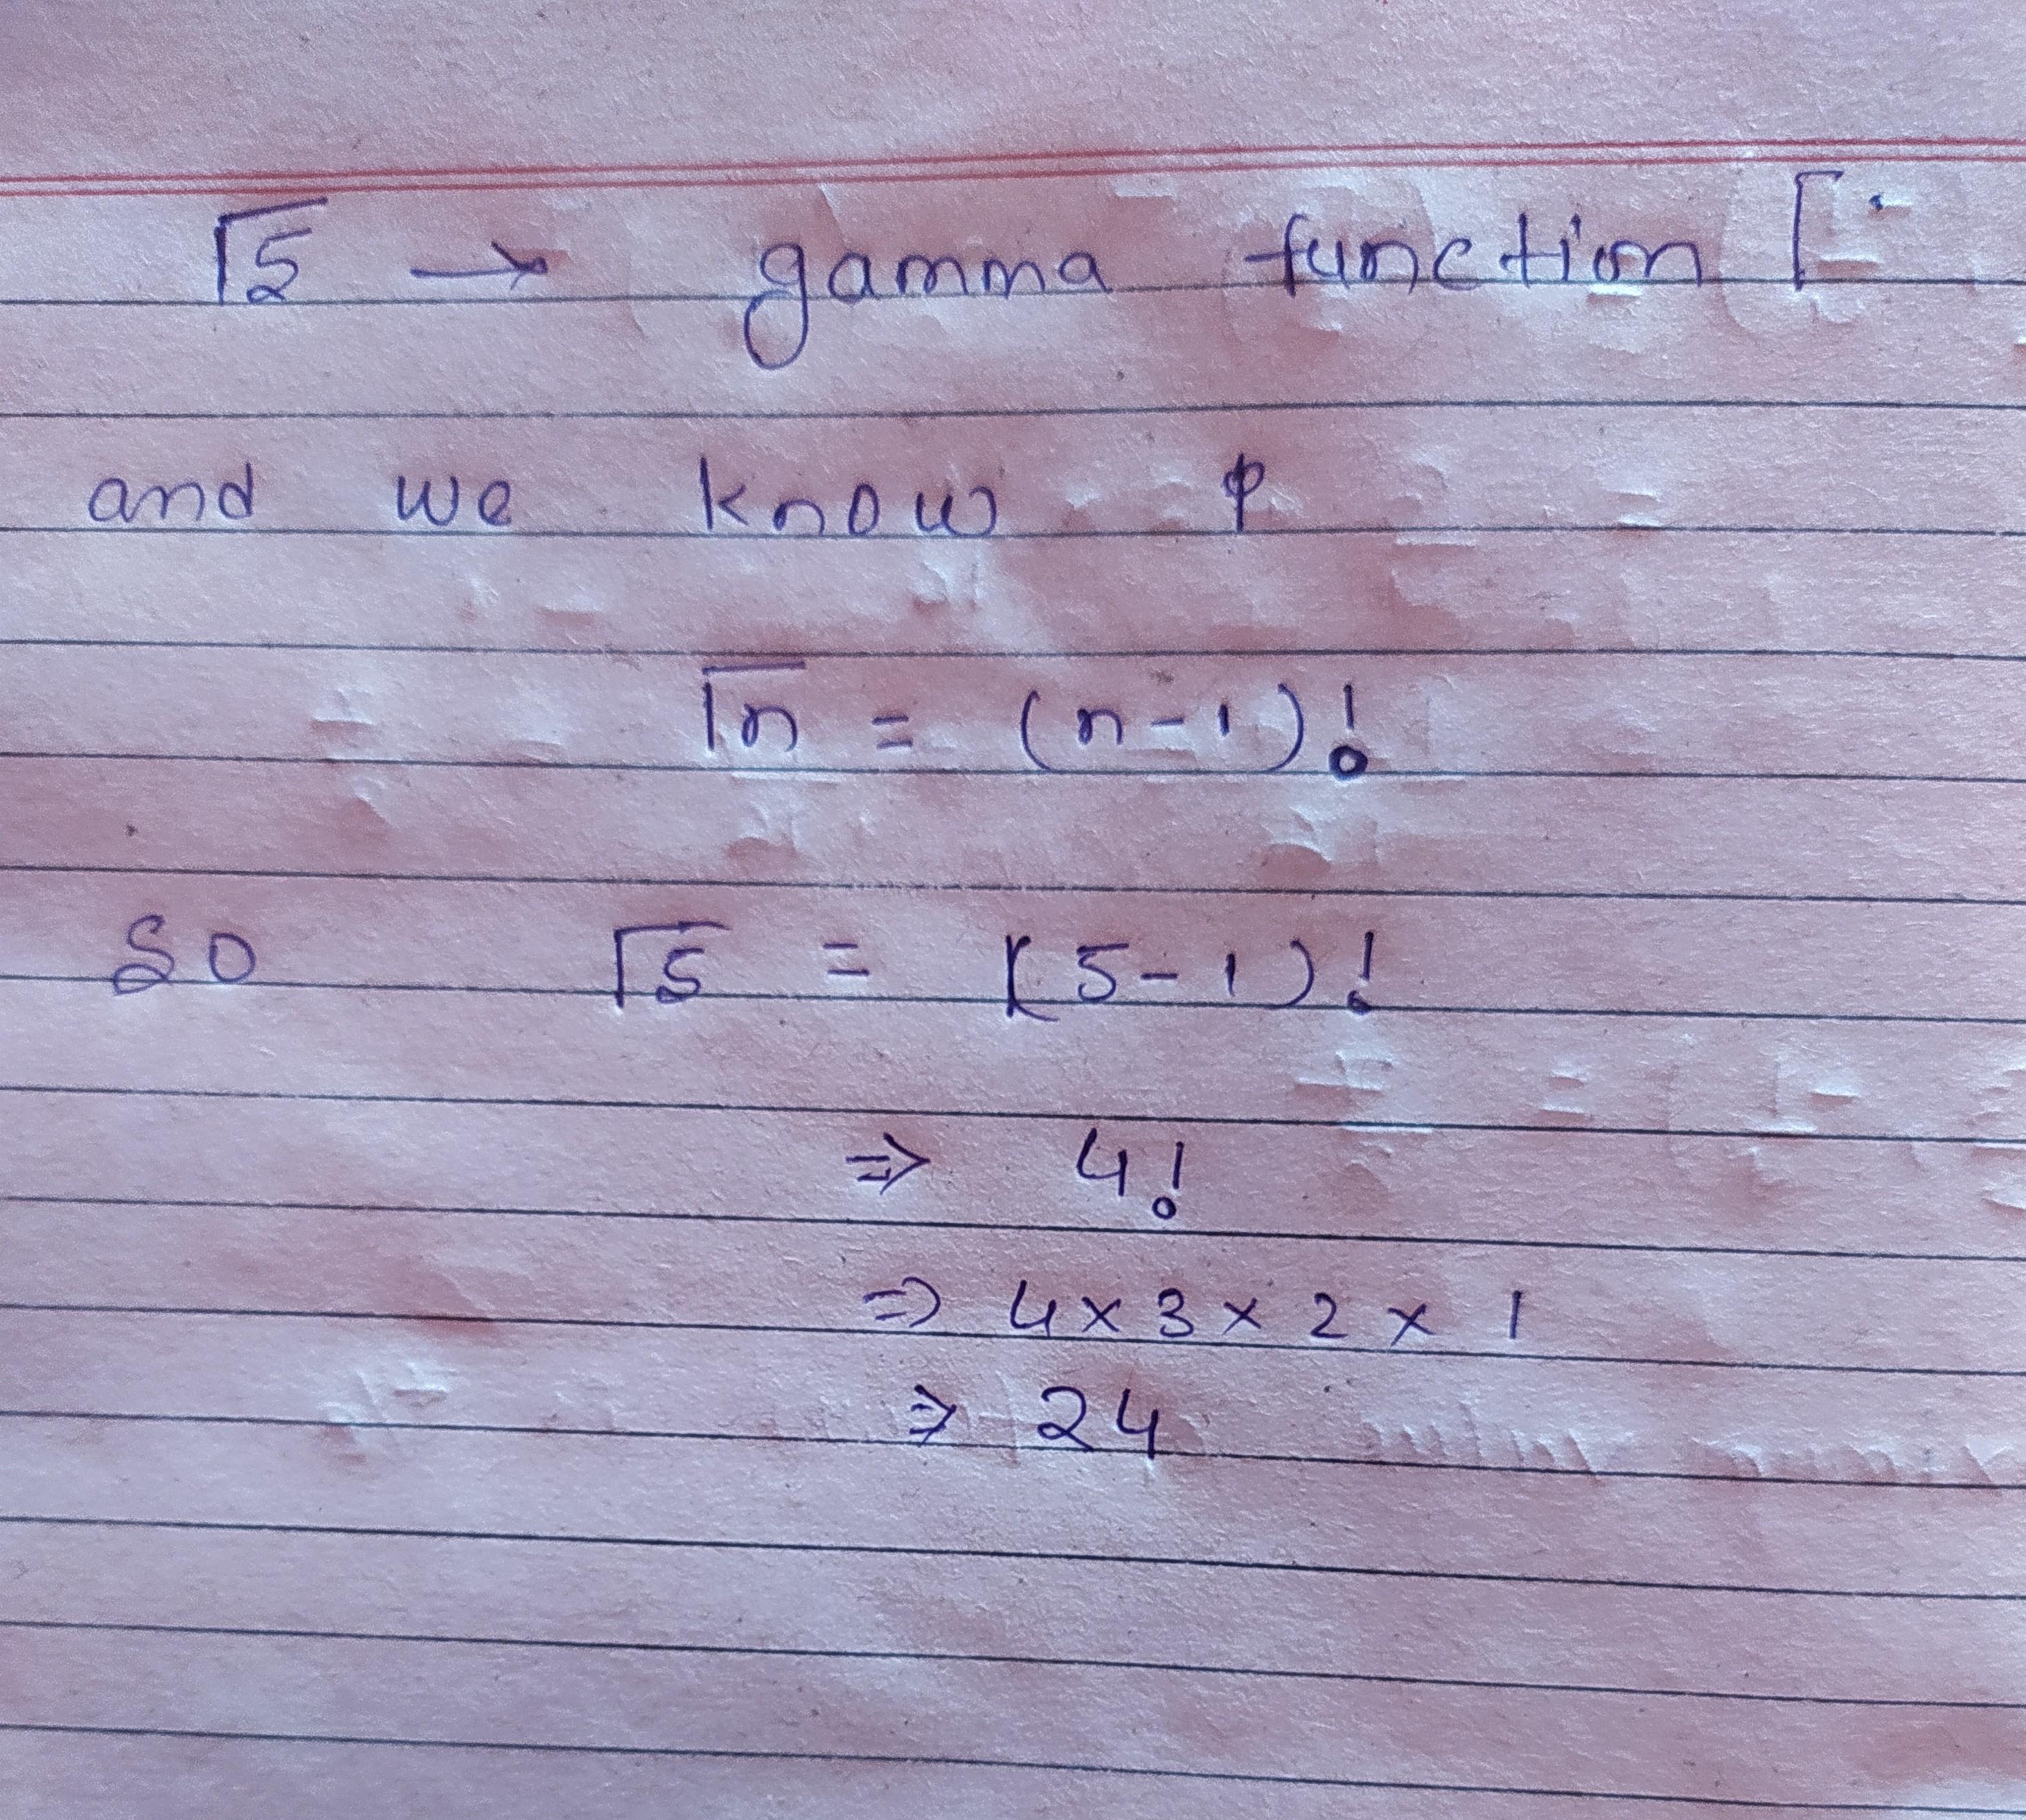 Γ5 → gamma function Γ
and we know
Γn = (n-1)!
So Γ5 = (5-1)!
⇒ 4!
⇒ 4 × 3 × 2 × 1
⇒ 24